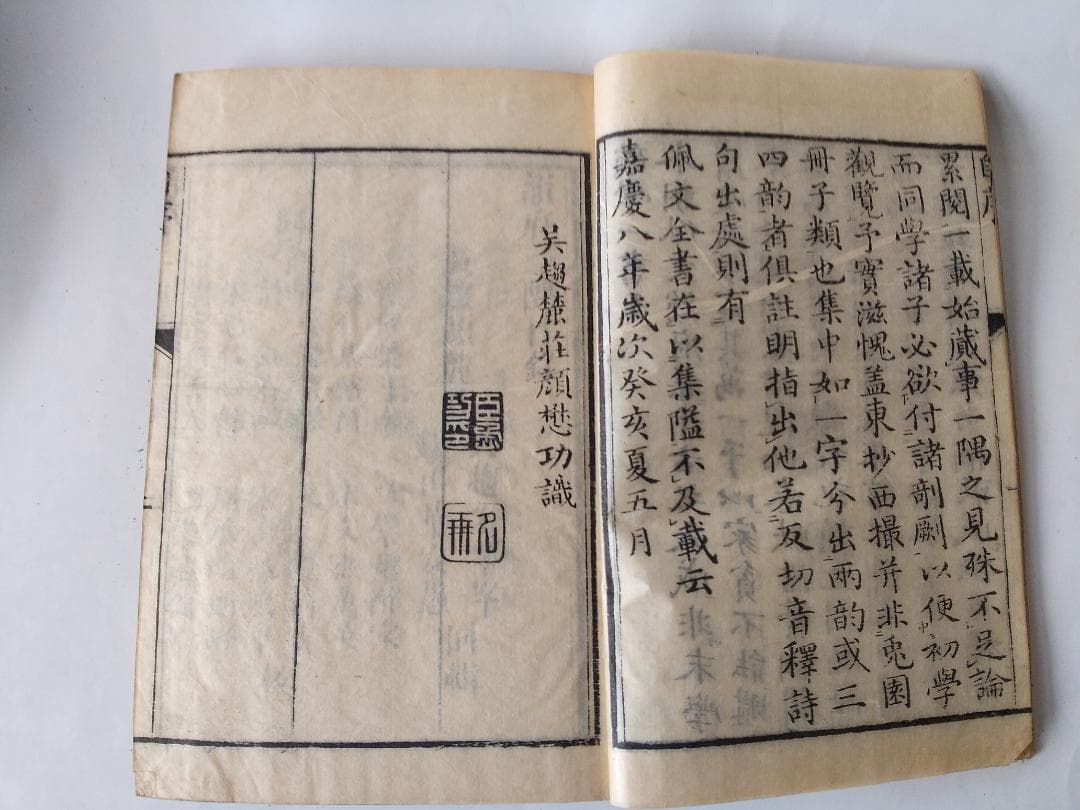 累閱一載始蕆事一隅之見殊不足論
而同學諸子必欲付諸剞劂以便初學
觀覽予實滋愧盖東抄西撮并非兎園
冊子類也集中如一字兮出兩韵或三
四韵者俱註明指出他若反切音釋詩
句出處則有
佩文全書在以集隘不及載云
嘉慶八年歲次癸亥夏五月
吴趨麓莊顔懋功識